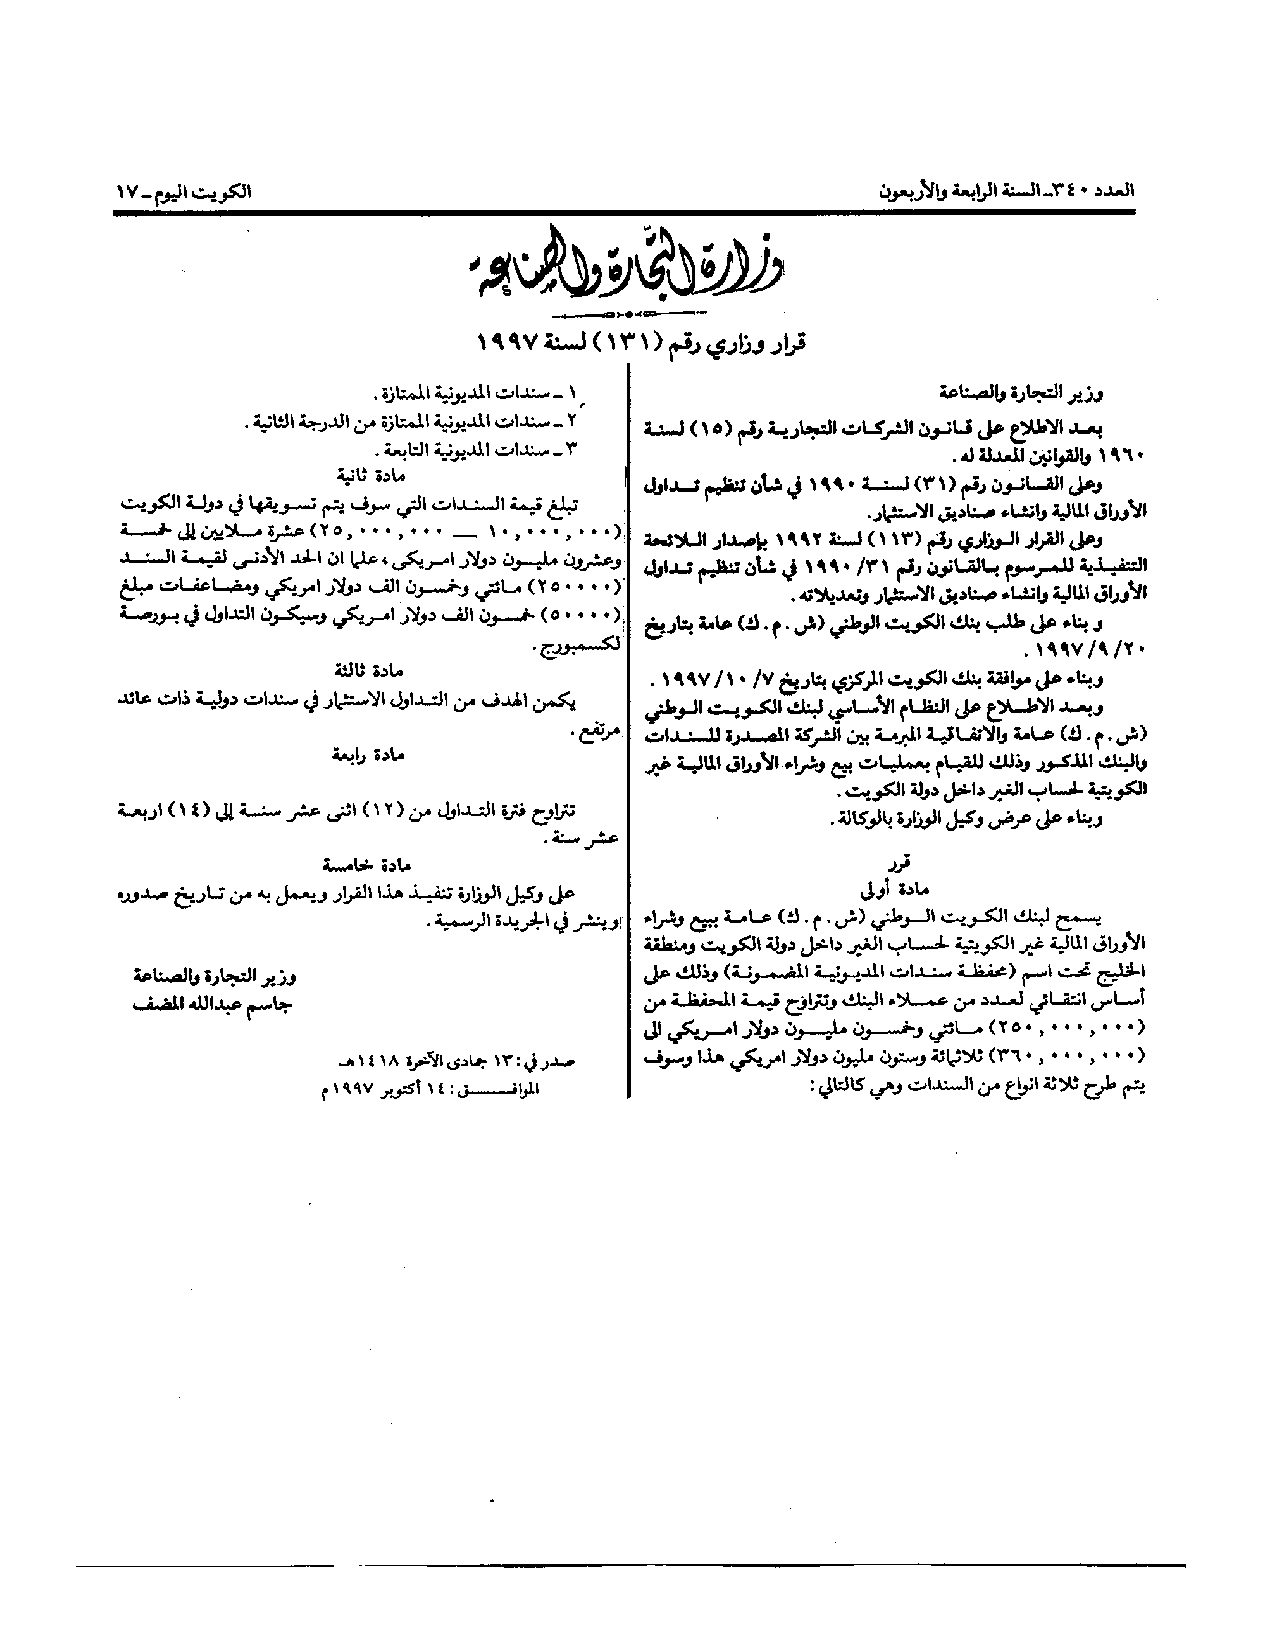 العدد ٣٤٠ـ السنة الرابعة والأربعون
الكويت اليوم ـ ١٧
وزارة التجارة والصناعة
قرار وزاري رقم (١٣١) لسنة ١٩٩٧
وزير التجارة والصناعة
بعد الاطلاع على قانون الشركات التجارية رقم (١٥) لسنة
١٩٦٠ والقوانين المعدلة له .
وعلى القانون رقم (٣١) لسنة ١٩٩٠ في شأن تنظيم تداول
الأوراق المالية وانشاء صناديق الاستثمار.
وعلى القرار الوزاري رقم (١١٣) لسنة ١٩٩٢ بإصدار اللائحة
التنفيذية للمرسوم بالقانون رقم ٣١/ ١٩٩٠ في شأن تنظيم تداول
الأوراق المالية وانشاء صناديق الاستثمار وتعديلاته .
و بناء على طلب بنك الكويت الوطني (ش . م . ك) عامة بتاريخ
٢٠/ ٩/ ١٩٩٧ .
وبناء على موافقة بنك الكويت المركزي بتاريخ ٧/ ١٠/ ١٩٩٧ .
وبعد الاطلاع على النظام الأساسي لبنك الكويت الوطني
(ش . م . ك) عامة والاتفاقية المبرمة بين الشركة المصدرة للسندات
والبنك المذكور وذلك للقيام بعمليات بيع وشراء الأوراق المالية غير
الكويتية لحساب الغير داخل دولة الكويت .
وبناء على عرض وكيل الوزارة بالوكالة .
قرر
مادة أولى
يسمح لبنك الكويت الوطني (ش . م . ك) عامة ببيع وشراء
الأوراق المالية غير الكويتية لحساب الغير داخل دولة الكويت ومنطقة
الخليج تحت اسم (محفظة سندات المديونية المضمونة) وذلك على
أساس انتقائي لعدد من عملاء البنك وتتراوح قيمة المحفظة من
(٢٥٠,٠٠٠,٠٠٠) مائتي وخمسون مليون دولار امريكي الى
(٣٦٠,٠٠٠,٠٠٠) ثلاثمائة وستون مليون دولار امريكي هذا وسوف
يتم طرح ثلاثة انواع من السندات وهي كالتالي :
١ ـ سندات المديونية الممتازة .
٢ ـ سندات المديونية الممتازة من الدرجة الثانية .
٣ ـ سندات المديونية التابعة .
مادة ثانية
تبلغ قيمة السندات التي سوف يتم تسويقها في دولة الكويت
(١٠,٠٠٠,٠٠٠ ــ ٢٥,٠٠٠,٠٠٠) عشرة ملايين إلى خمسة
وعشرون مليون دولار امريكي ، علما ان الحد الأدنى لقيمة السند
(٢٥٠٠٠٠) مائتي وخمسون الف دولار امريكي ومضاعفات مبلغ
(٥٠٠٠٠) خمسون الف دولار امريكي وسيكون التداول في بورصة
لكسمبورج .
مادة ثالثة
يكمن الهدف من التداول الاستثمار في سندات دولية ذات عائد
مرتفع .
مادة رابعة
تتراوح فترة التداول من (١٢) اثنى عشر سنة إلى (١٤) اربعة
عشر سنة .
مادة خامسة
على وكيل الوزارة تنفيذ هذا القرار ويعمل به من تاريخ صدوره
وينشر في الجريدة الرسمية .
وزير التجارة والصناعة
جاسم عبدالله المضف
صدر في : ١٣ جمادى الآخرة ١٤١٨هـ
الموافـــــق : ١٤ أكتوبر ١٩٩٧ م